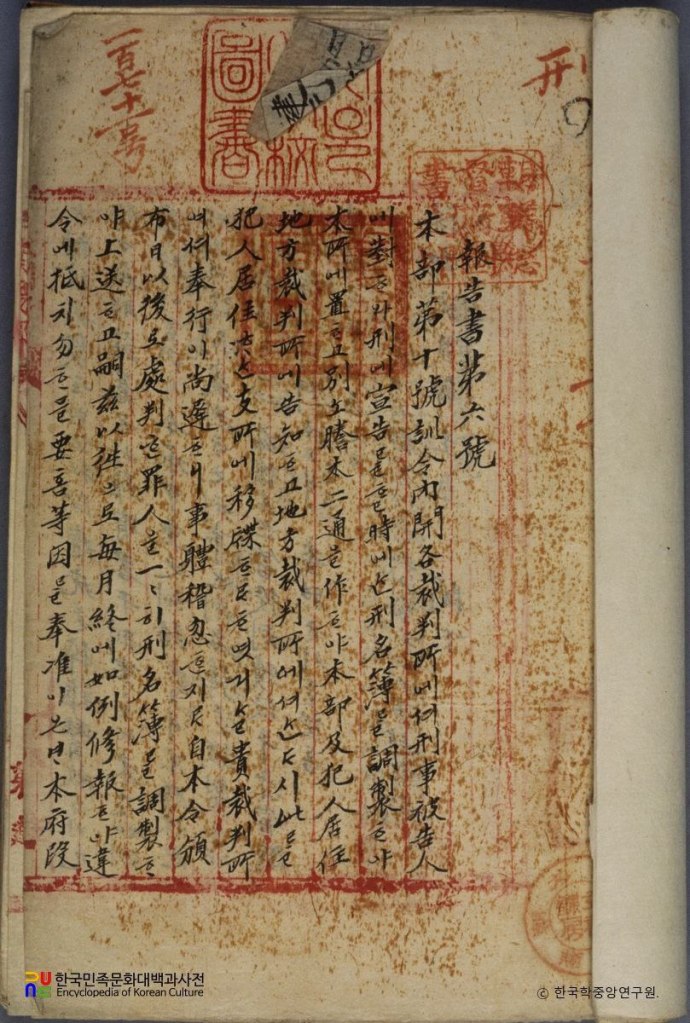 報告書第六號
本部第十號訓令內開各裁判所에셔刑事被告人
에對ᄒᆞ야刑에宣告를ᄒᆞᆯ時에ᄂᆞᆫ刑名簿를調製ᄒᆞ야
本所에置ᄒᆞ고別노謄本二通을作ᄒᆞ야本部及犯人居住
地方裁判所에告知ᄒᆞ고地方裁判所에셔ᄂᆞᆫ다시此를
犯人居住ᄒᆞᄂᆞᆫ支所에移牒ᄒᆞ라ᄒᆞ엿거ᄂᆞᆯ貴裁判所
에셔奉行이尙遲ᄒᆞ니事體稽忽ᄒᆞᆫ지라自本令頒
布日以後로處判ᄒᆞᆫ罪人을一〻히刑名簿를調製ᄒᆞ
야上送ᄒᆞ고嗣玆以往으로每月終에如例修報ᄒᆞ야違
令에抵치勿ᄒᆞᆷ을要喜等因을奉准이ᄂᆞᆫ바本府段
한국민족문화대백과사전
Encyclopedia of Korean Culture
© 한국학중앙연구원.